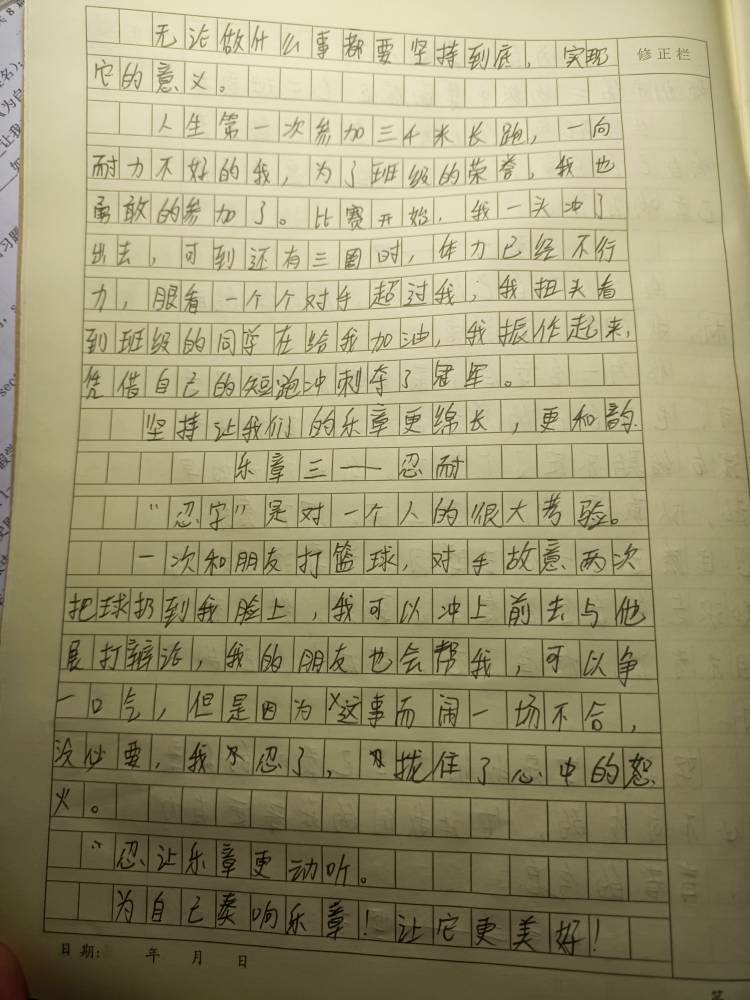 无论做什么事都要坚持到底，实现
修正栏
它的意义。
人生第一次参加三千米长跑，一向
耐力不好的我，为了班级的荣誉，我也
勇敢的参加了。比赛开始，我一头冲了
出去，可到还有三圈时，体力已经不行
力，眼看一个个对手超过我，我扭头看
到班级的同学在给我加油，我振作起来，
凭借自己的短跑冲刺夺了冠军。
坚持让我们的乐章更绵长，更和韵
乐章三——忍耐
“忍字”是对一个人的很大考验。
一次和朋友打篮球，对手故意两次
把球扔到我脸上，我可以冲上前去与他
打辩论，我的朋友也会帮我，可以争
一口气，但是因为这事而闹一场不合，
没必要，我忍了，拢住了心中的怒
火。
“忍让乐章更动听。
为自己奏响乐章！让它更美好！
日期： 年 月 日